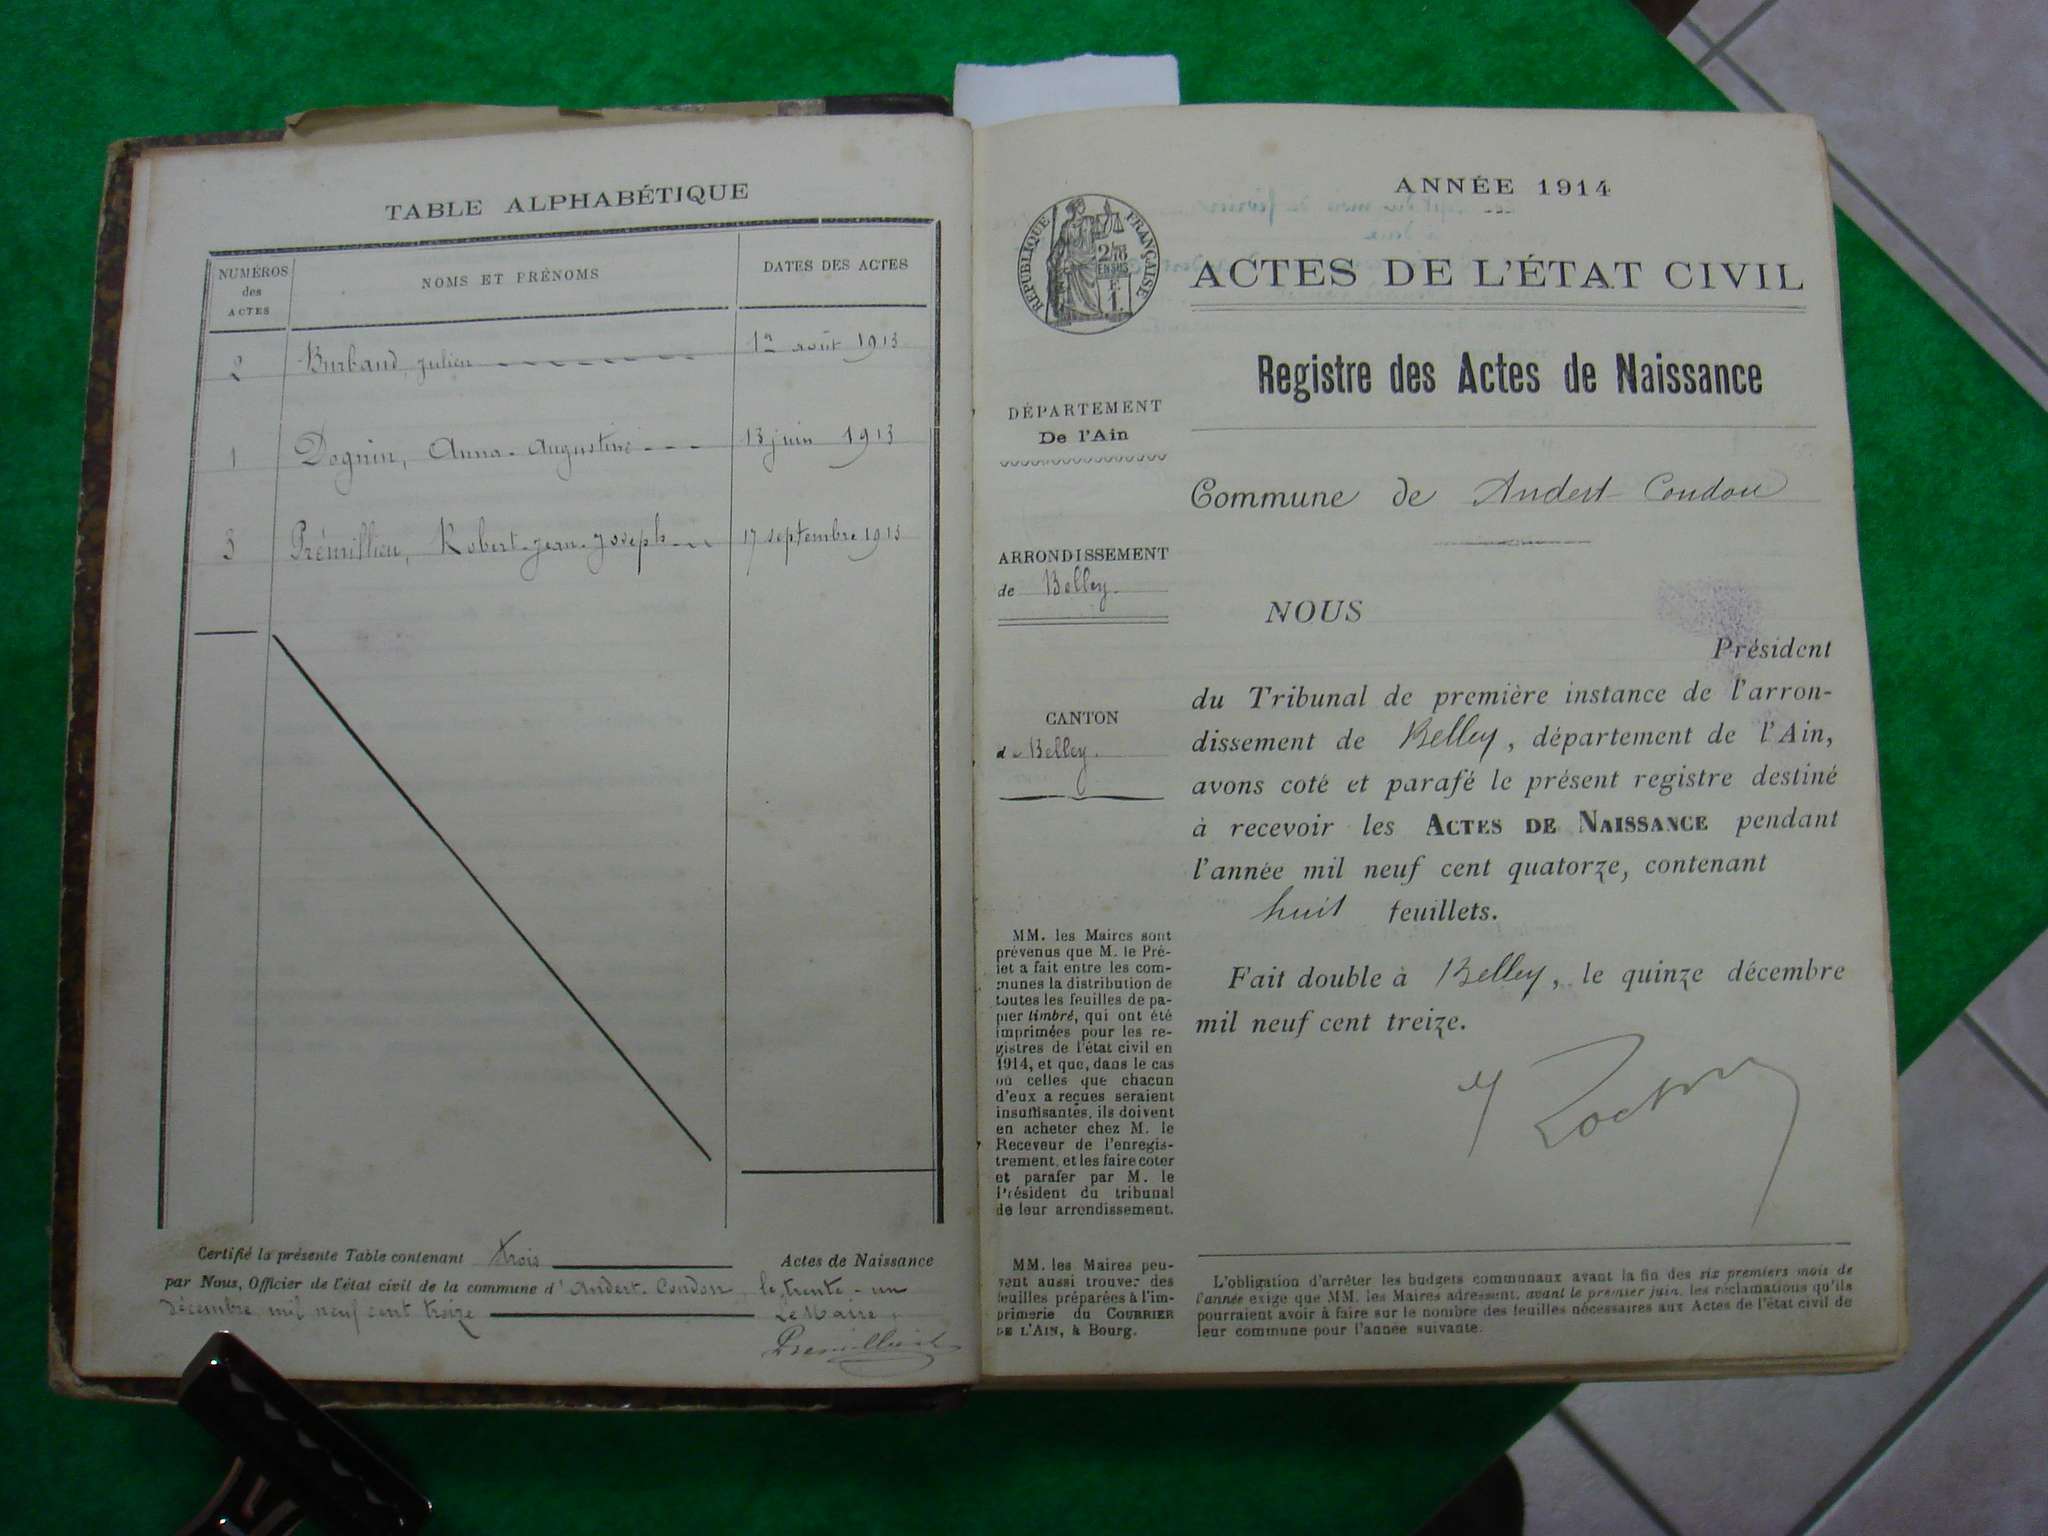 TABLE ALPHABÉTIQUE
NUMÉROS des ACTES
NOMS ET PRÉNOMS
DATES DES ACTES
2 Burbaud, Julien 1er août 1913
1 Dognin, Anna-Augustine 13 juin 1913
3 Prémillieu, Robert-Jean-Joseph 17 septembre 1913
Certifié la présente Table contenant trois Actes de Naissance
par Nous, Officier de l'état civil de la commune d'Andert-Condon, le trente-un
décembre mil neuf cent treize Le Maire,
ANNÉE 1914
RÉPUBLIQUE FRANÇAISE
ACTES DE L'ÉTAT CIVIL
Registre des Actes de Naissance
DÉPARTEMENT
De l'Ain
Commune de Andert-Condon
ARRONDISSEMENT
de Belley.
CANTON
de Belley.
NOUS
Président
du Tribunal de première instance de l'arron-
dissement de Belley, département de l'Ain,
avons coté et parafé le présent registre destiné
à recevoir les ACTES DE NAISSANCE pendant
l'année mil neuf cent quatorze, contenant
huit feuillets.
Fait double à Belley, le quinze décembre
mil neuf cent treize.
MM. les Maires sont
prévenus que M. le Pré-
fet a fait entre les com-
munes la distribution de
toutes les feuilles de pa-
pier timbré, qui ont été
imprimées pour les re-
gistres de l'état civil en
1914, et que, dans le cas
où celles que chacun
d'eux a reçues seraient
insuffisantes, ils doivent
en acheter chez M. le
Receveur de l'enregis-
trement, et les faire coter
et parafer par M. le
Président du tribunal
de leur arrondissement.
MM. les Maires peu-
vent aussi trouver des
feuilles préparées à l'im-
primerie du COURRIER
DE L'AIN, à Bourg.
L'obligation d'arrêter les budgets communaux avant la fin des six premiers mois de
l'année exige que MM. les Maires adressent, avant le premier juin, les réclamations qu'ils
pourraient avoir à faire sur le nombre des feuilles nécessaires aux Actes de l'état civil de
leur commune pour l'année suivante.